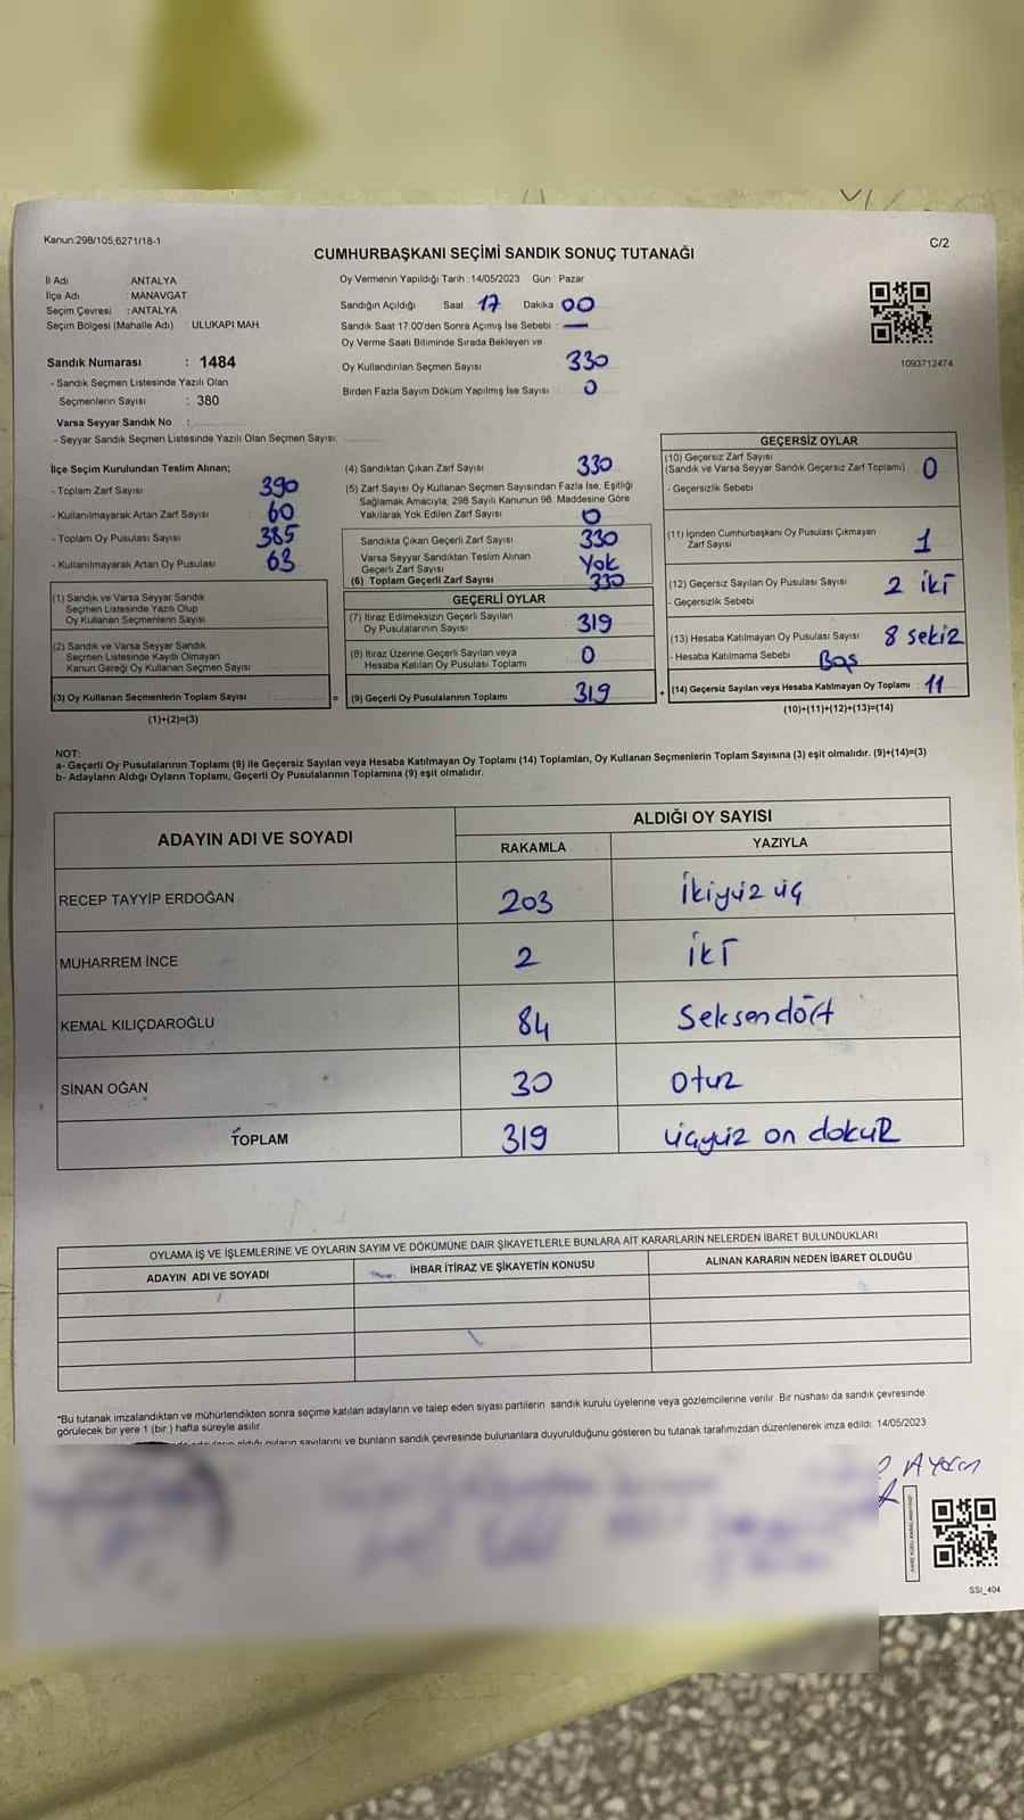 Kanun:298/105,6271/18-1
C/2
CUMHURBAŞKANI SEÇİMİ SANDIK SONUÇ TUTANAĞI
İl Adı ANTALYA
İlçe Adı : MANAVGAT
Seçim Çevresi : ANTALYA
Seçim Bölgesi (Mahalle Adı) ULUKAPI MAH.
Sandık Numarası : 1484
- Sandık Seçmen Listesinde Yazılı Olan
Seçmenlerin Sayısı : 380
Varsa Seyyar Sandık No :
- Seyyar Sandık Seçmen Listesinde Yazılı Olan Seçmen Sayısı:
Oy Vermenin Yapıldığı Tarih : 14/05/2023 Gün : Pazar
Sandığın Açıldığı Saat 17 Dakika 00
Sandık Saat 17.00'den Sonra Açmış İse Sebebi : —
Oy Verme Saati Bitiminde Sırada Bekleyen ve
Oy Kullandırılan Seçmen Sayısı 330
Birden Fazla Sayım Döküm Yapılmış İse Sayısı 0
1093712474
İlçe Seçim Kurulundan Teslim Alınan;
- Toplam Zarf Sayısı 390
- Kullanılmayarak Artan Zarf Sayısı 60
- Toplam Oy Pusulası Sayısı 385
- Kullanılmayarak Artan Oy Pusulası 63
(1) Sandık ve Varsa Seyyar Sandık
Seçmen Listesinde Yazılı Olup
Oy Kullanan Seçmenlerin Sayısı
(2) Sandık ve Varsa Seyyar Sandık
Seçmen Listesinde Kayıtlı Olmayan
Kanun Gereği Oy Kullanan Seçmen Sayısı
(3) Oy Kullanan Seçmenlerin Toplam Sayısı =
(1)+(2)=(3)
(4) Sandıktan Çıkan Zarf Sayısı 330
(5) Zarf Sayısı Oy Kullanan Seçmen Sayısından Fazla İse, Eşitliği
Sağlamak Amacıyla, 298 Sayılı Kanunun 98. Maddesine Göre
Yakılarak Yok Edilen Zarf Sayısı 0
Sandıkta Çıkan Geçerli Zarf Sayısı 330
Varsa Seyyar Sandıktan Teslim Alınan
Geçerli Zarf Sayısı Yok
(6) Toplam Geçerli Zarf Sayısı 330
GEÇERLİ OYLAR
(7) İtiraz Edilmeksizin Geçerli Sayılan
Oy Pusulalarının Sayısı 319
(8) İtiraz Üzerine Geçerli Sayılan veya
Hesaba Katılan Oy Pusulası Toplamı 0
(9) Geçerli Oy Pusulalarının Toplamı 319 +
GEÇERSİZ OYLAR
(10) Geçersiz Zarf Sayısı
(Sandık ve Varsa Seyyar Sandık Geçersiz Zarf Toplamı) 0
- Geçersizlik Sebebi
(11) İçinden Cumhurbaşkanı Oy Pusulası Çıkmayan
Zarf Sayısı 1
(12) Geçersiz Sayılan Oy Pusulası Sayısı 2 iki
- Geçersizlik Sebebi
(13) Hesaba Katılmayan Oy Pusulası Sayısı 8 sekiz
- Hesaba Katılmama Sebebi Boş
(14) Geçersiz Sayılan veya Hesaba Katılmayan Oy Toplamı : 11
(10)+(11)+(12)+(13)=(14)
NOT:
a- Geçerli Oy Pusulalarının Toplamı (9) ile Geçersiz Sayılan veya Hesaba Katılmayan Oy Toplamı (14) Toplamları, Oy Kullanan Seçmenlerin Toplam Sayısına (3) eşit olmalıdır. (9)+(14)=(3)
b- Adayların Aldığı Oyların Toplamı, Geçerli Oy Pusulalarının Toplamına (9) eşit olmalıdır.
ADAYIN ADI VE SOYADI ALDIĞI OY SAYISI
RAKAMLA YAZIYLA
RECEP TAYYİP ERDOĞAN 203 İkiyüz üç
MUHARREM İNCE 2 iki
KEMAL KILIÇDAROĞLU 84 Seksendört
SİNAN OĞAN 30 otuz
TOPLAM 319 üçyüz on dokuz
OYLAMA İŞ VE İŞLEMLERİNE VE OYLARIN SAYIM VE DÖKÜMÜNE DAİR ŞİKAYETLERLE BUNLARA AİT KARARLARIN NELERDEN İBARET BULUNDUKLARI
ADAYIN ADI VE SOYADI İHBAR İTİRAZ VE ŞİKAYETİN KONUSU ALINAN KARARIN NEDEN İBARET OLDUĞU
*Bu tutanak imzalandıktan ve mühürlendikten sonra seçime katılan adayların ve talep eden siyasi partilerin sandık kurulu üyelerine veya gözlemcilerine verilir. Bir nüshası da sandık çevresinde
görülecek bir yere 1 (bir) hafta süreyle asılır.
aldığı oyların sayılarını ve bunların sandık çevresinde bulunanlara duyurulduğunu gösteren bu tutanak tarafımızdan düzenlenerek imza edildi: 14/05/2023
SSI_404